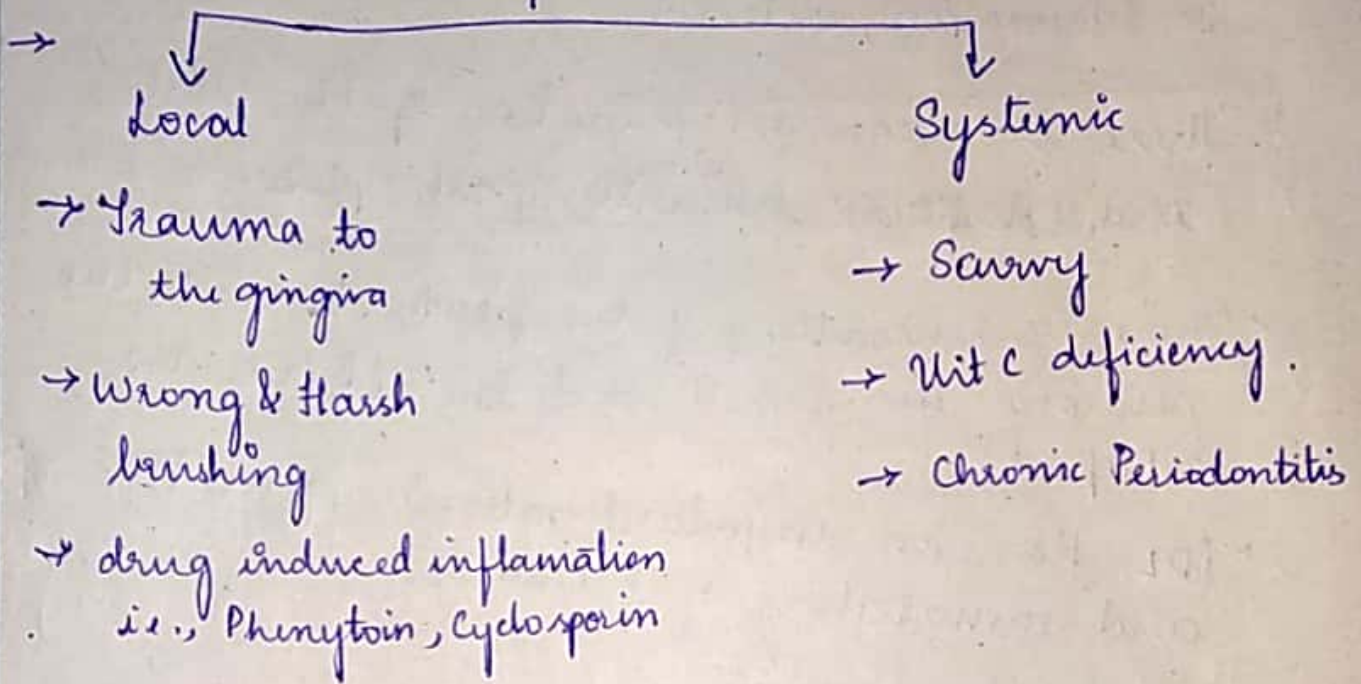 →
Local
Systemic
→ Trauma to
the gingiva
→ Wrong & Harsh
brushing
→ drug induced inflamation
i.e., Phenytoin, Cyclosporin
→ Scurvy
→ Vit C deficiency.
→ Chronic Periodontitis